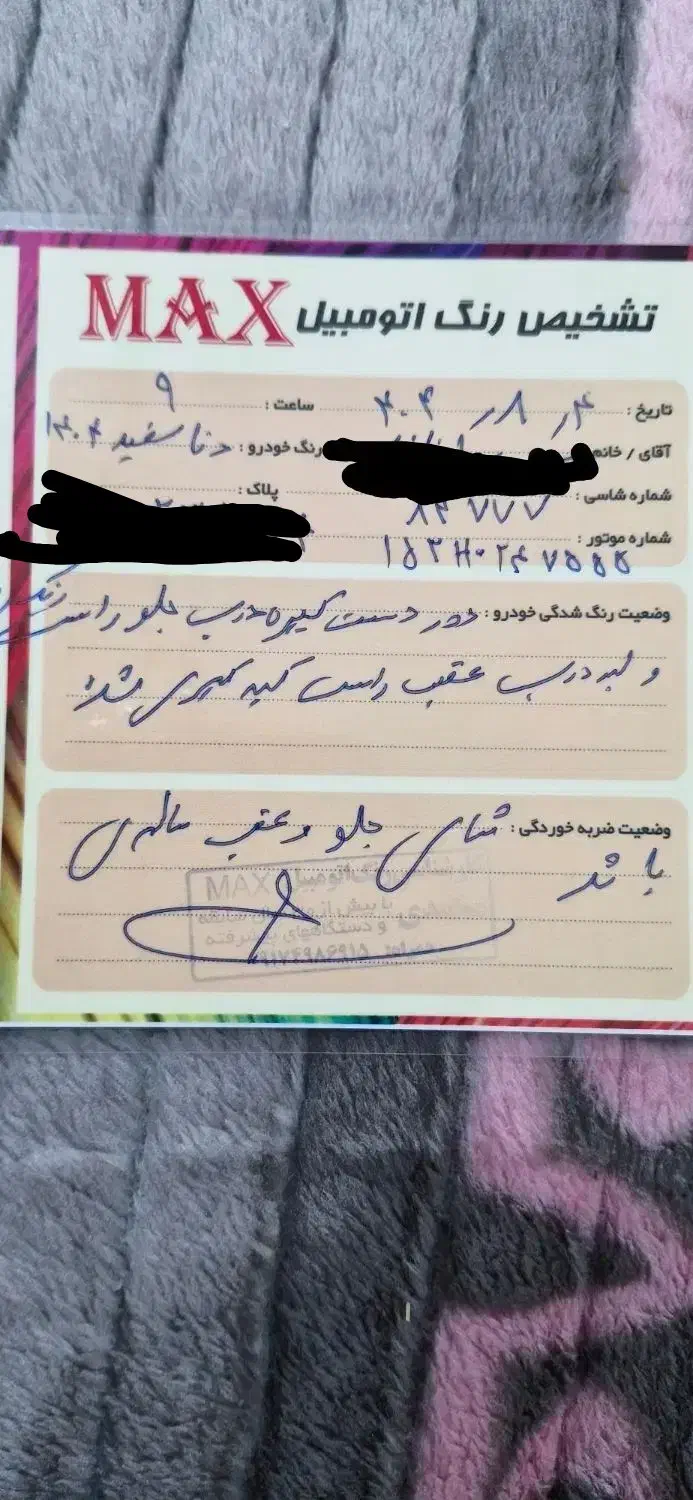 تشخیص رنگ اتومبیل MAX
تاریخ : ۴ ر ۸ ر ۴۰۴ ساعت : ۹
آقای / خانم رنگ خودرو : دنا سفید ۱۴۰۴
شماره شاسی : ۸۴۷۷۷ پلاک :
شماره موتور : ۱۵۳H۰۲۴۷۵۵۵
وضعیت رنگ شدگی خودرو : دور دست گیره درب جلو راست رنگ
و لبه درب عقب راست لیسه گیری شد
وضعیت ضربه خوردگی : شاسی جلو و عقب سالم می
با شد
رنگ اتومبیل MAX
با بیش از
و دستگاههای پیشرفته